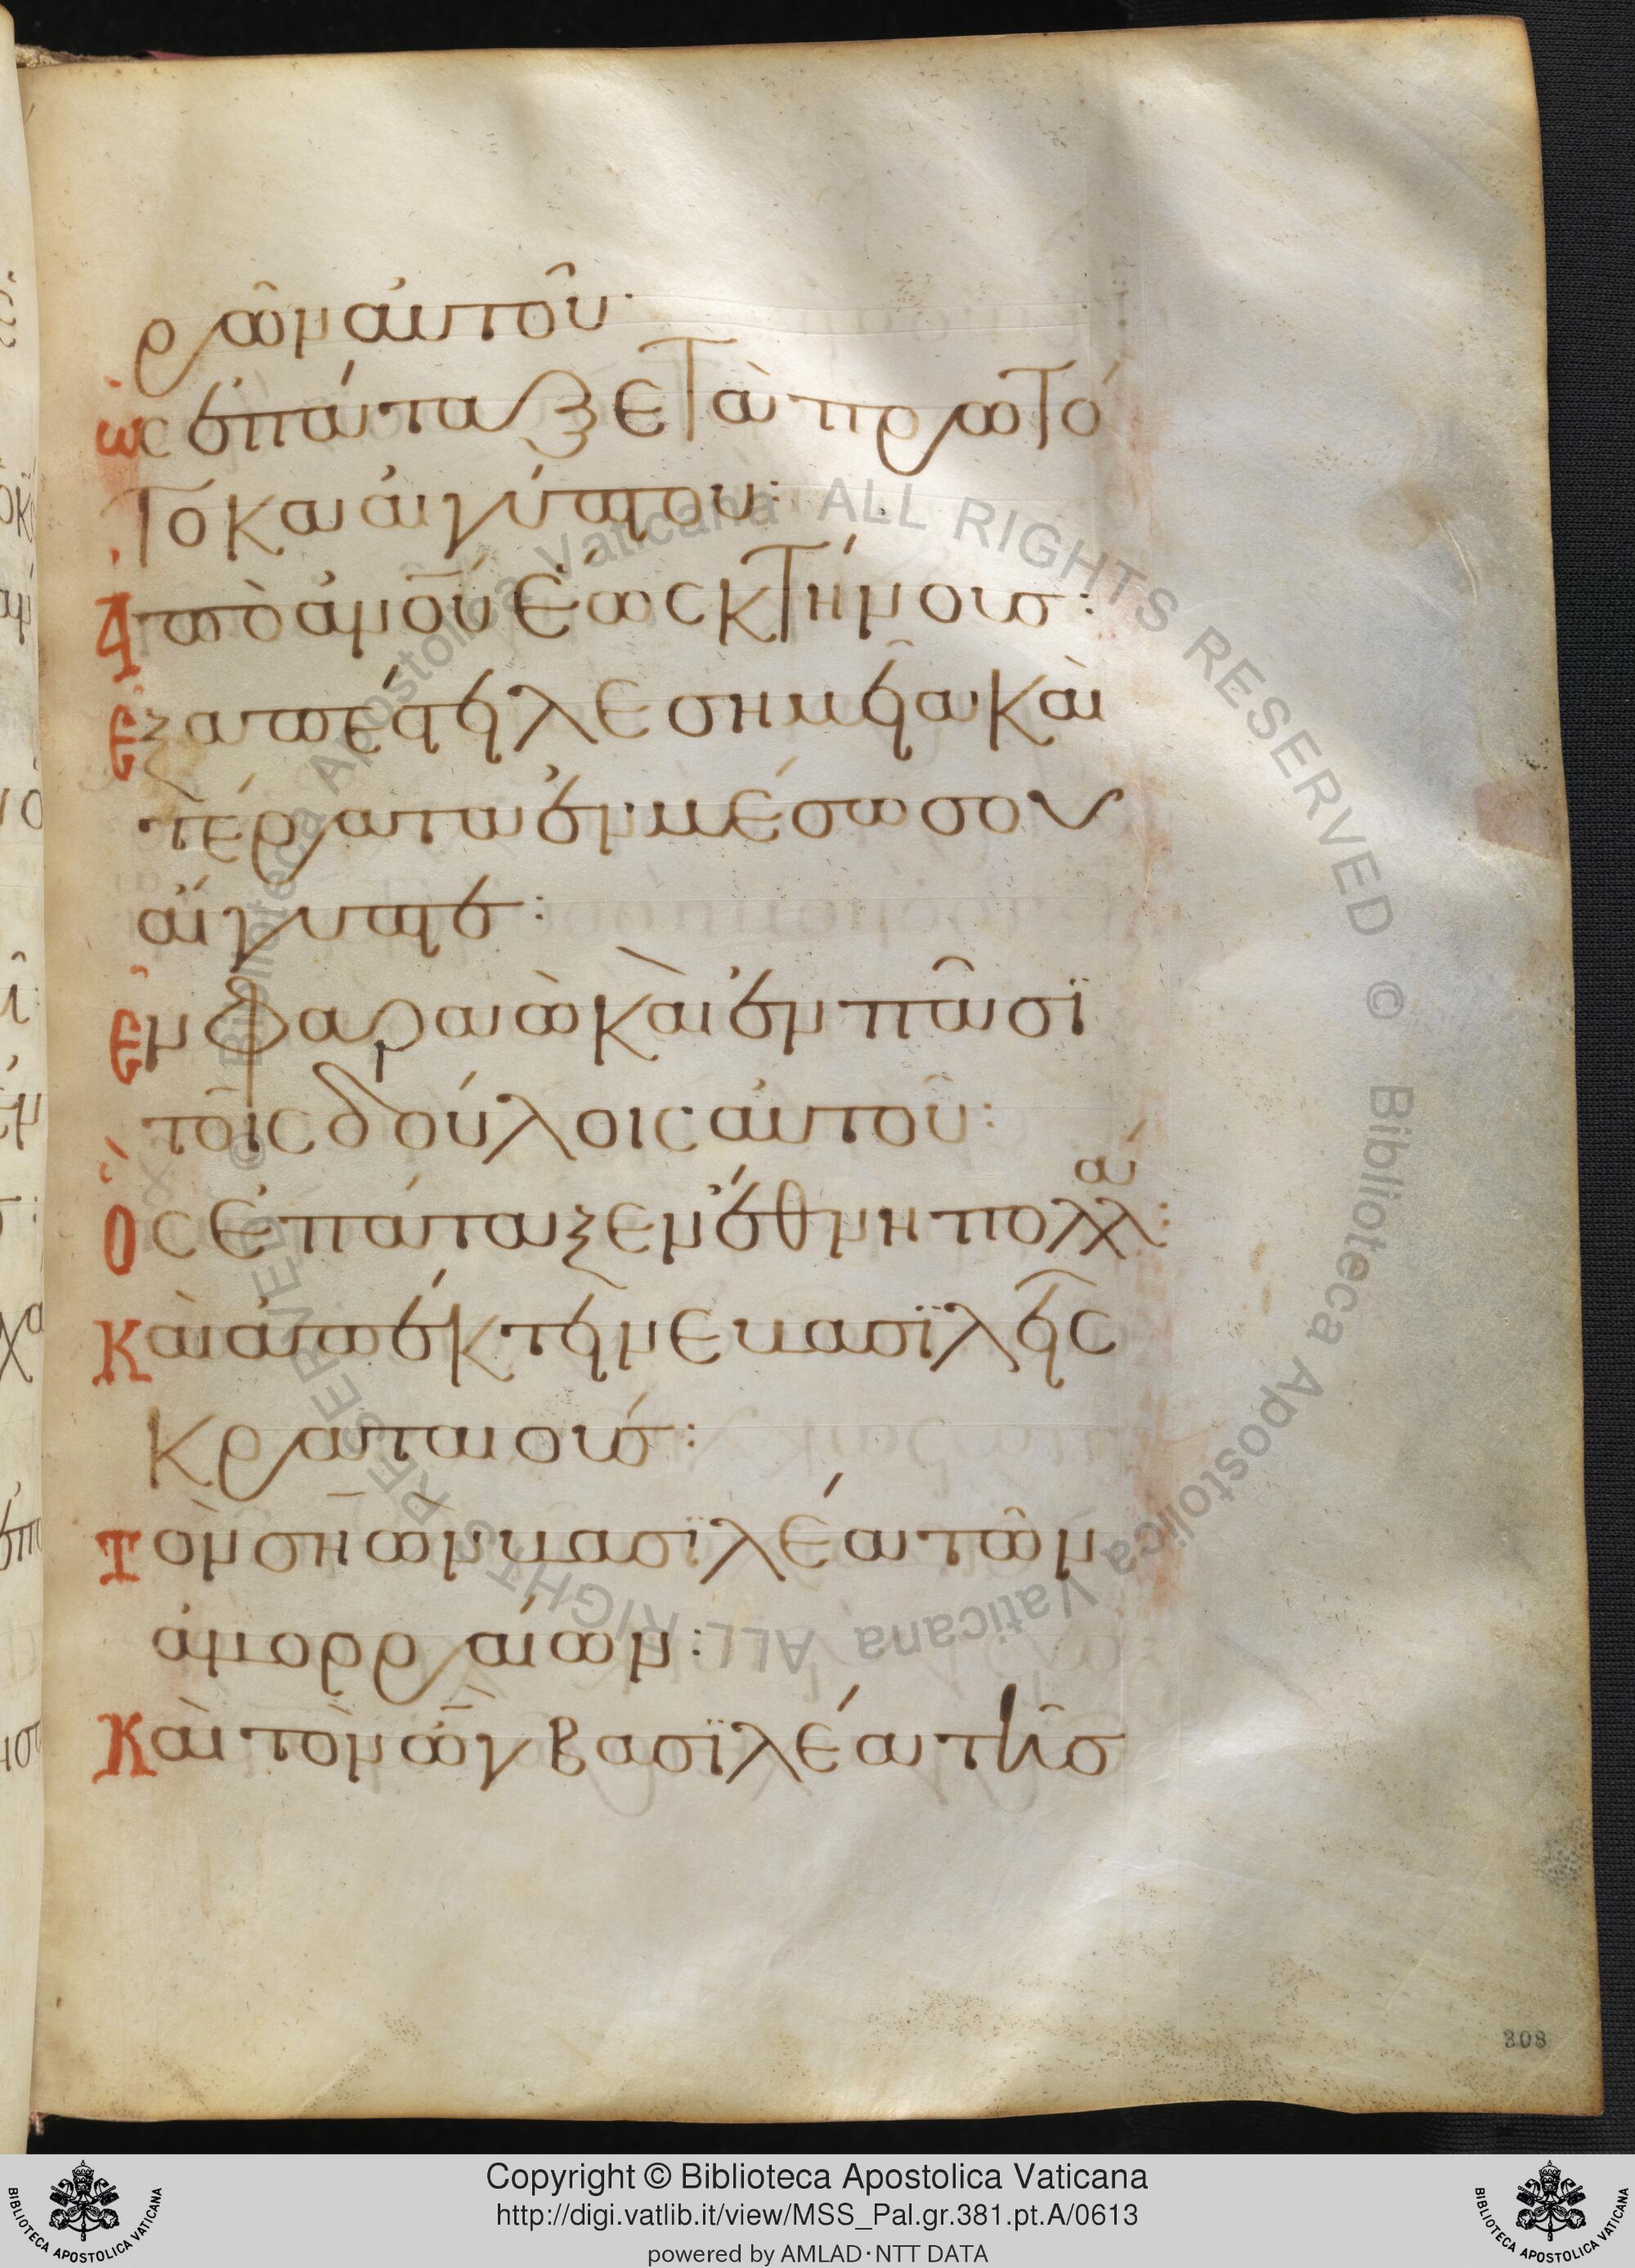 ρῶν αὐτοῦ·
ὡς ἐπάταξε τὰ πρωτό
τοκα αἰγύπτου:
Ἀπὸ ἀνοῦ ἕως κτήνους:
Ἐξαπέστειλε σημεῖα καὶ
τέρατα ἐν μέσω σου
αἴγυπτε:
Ἐν φαραὼ καὶ ἐν πᾶσϊ
τοῖς δούλοις αὐτοῦ:
Ὃς ἐπάταξεν ἔθνη πολλά:
Καὶ ἀπέκτεινε βασϊλεῖς
κραταιούς:
Τὸν σηὼν βασϊλέα τῶν
ἀμορραίων:
Καὶ τὸν ὢγ βασϊλέα τῆς
308
Biblioteca Apostolica Vaticana ALL RIGHTS RESERVED © Biblioteca Apostolica Vaticana ALL RIGHTS RESERVED ©
Copyright © Biblioteca Apostolica Vaticana
http://digi.vatlib.it/view/MSS_Pal.gr.381.pt.A/0613
powered by AMLAD·NTT DATA
BIBLIOTECA APOSTOLICA VATICANA
BIBLIOTECA APOSTOLICA VATICANA